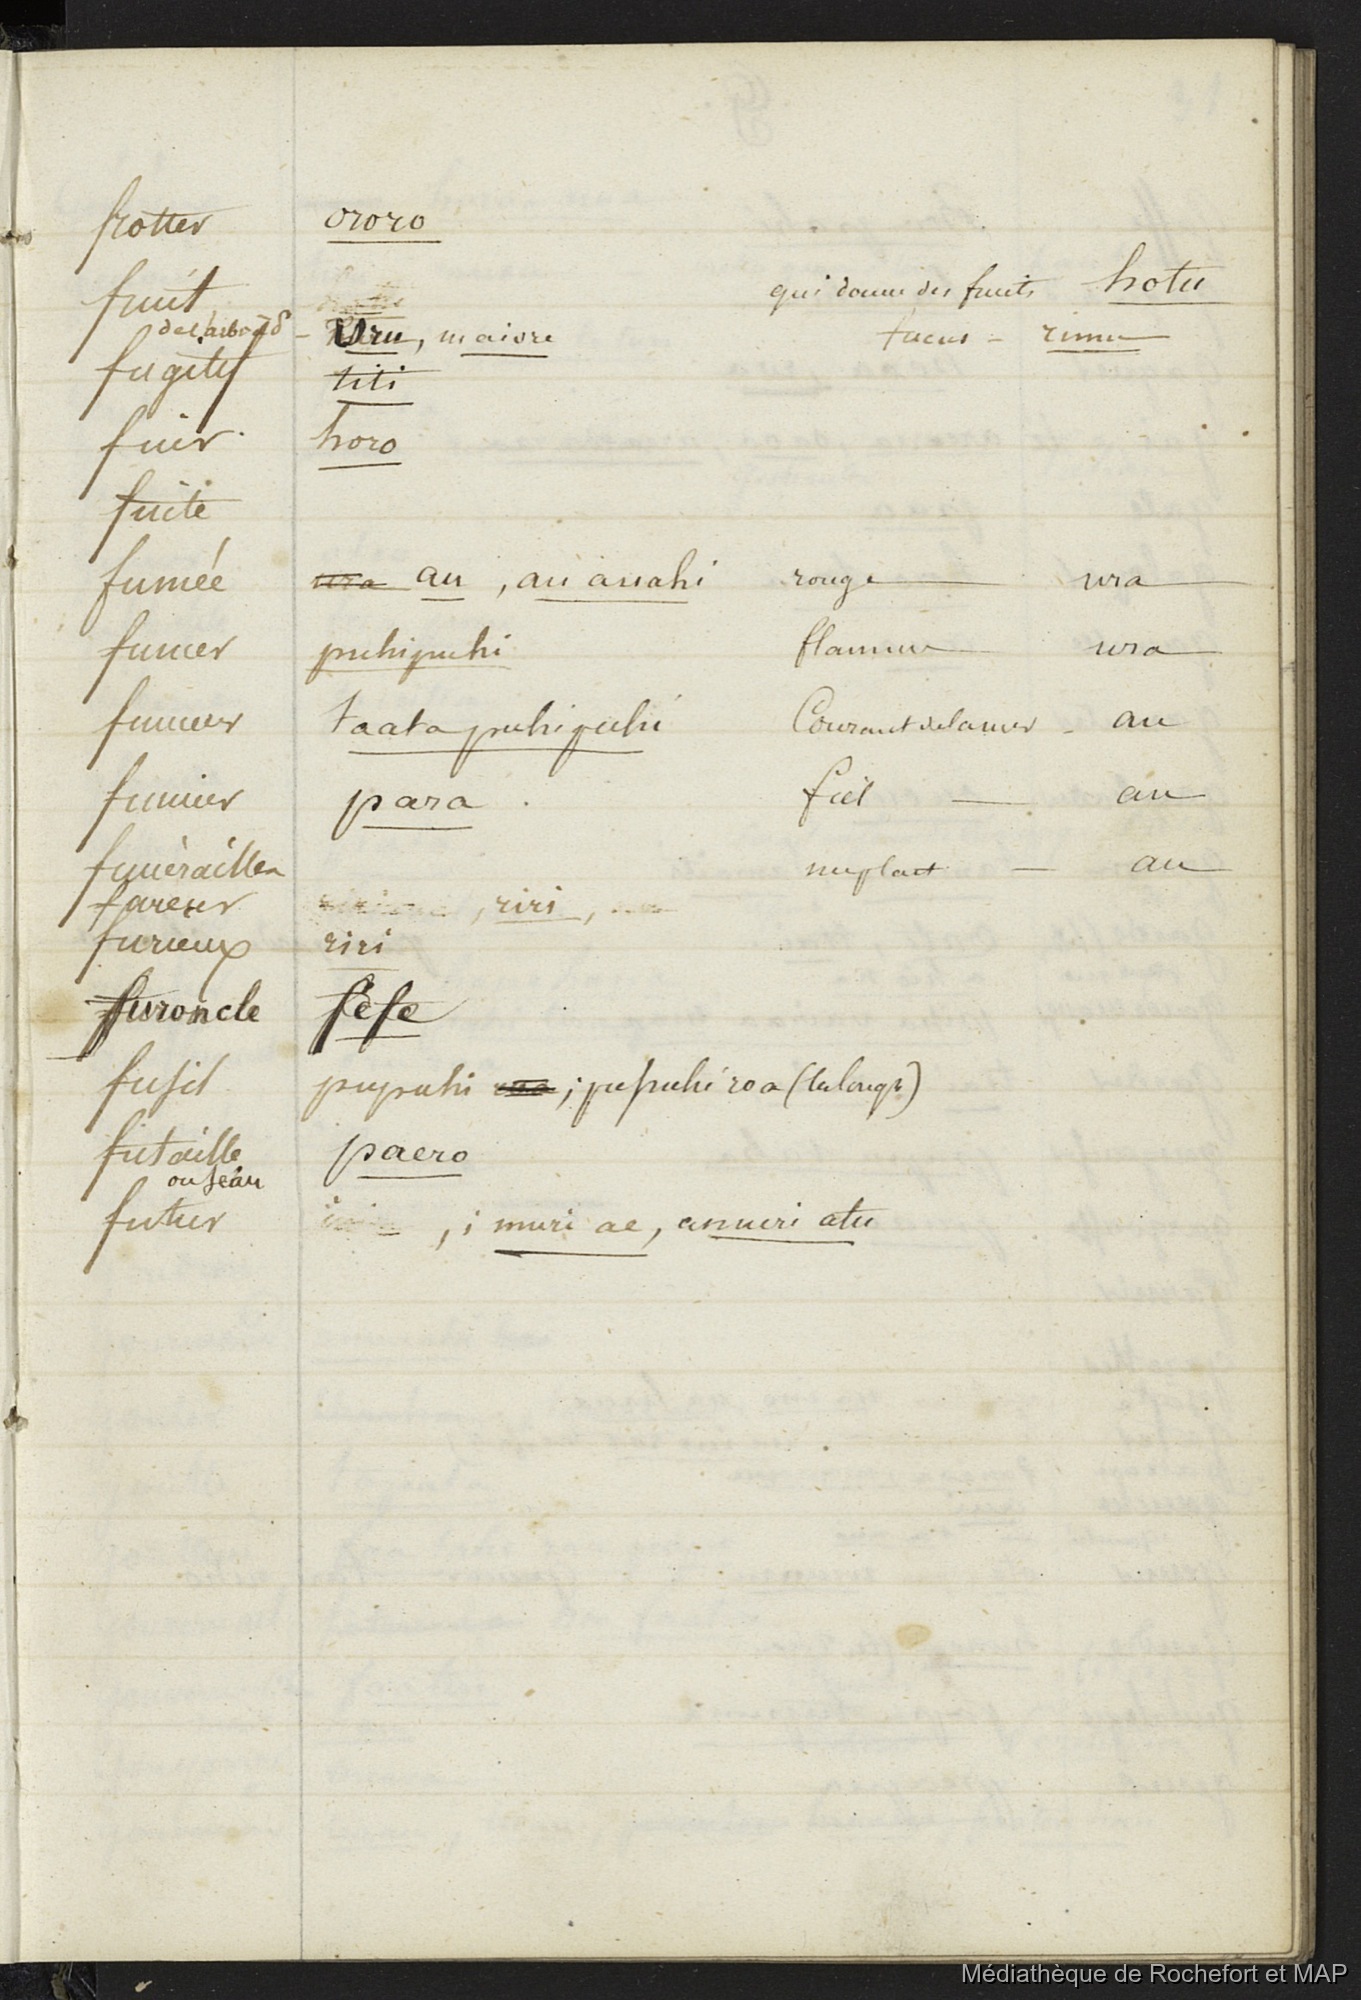 frotter ororo
fruit qui donne des fruits hotu
de l'arbre à - Uru, maiore fucus - rimu
fugitif titi
fuir horo
fuite
fumée ura au, au auahi rouge ura
fumer puhipuhi flamme ura
fumeur taata puhipuhi Courant de la mer - au
fumier para. fiel — au
funérailles me plait — au
fureur , riri,
furieux riri
furoncle fefe
fusil pupuhi ; pupuhi roa (le long)
futaille paero
ou seau
futur , i muri ae, amuri atu
Médiathèque de Rochefort et MAP